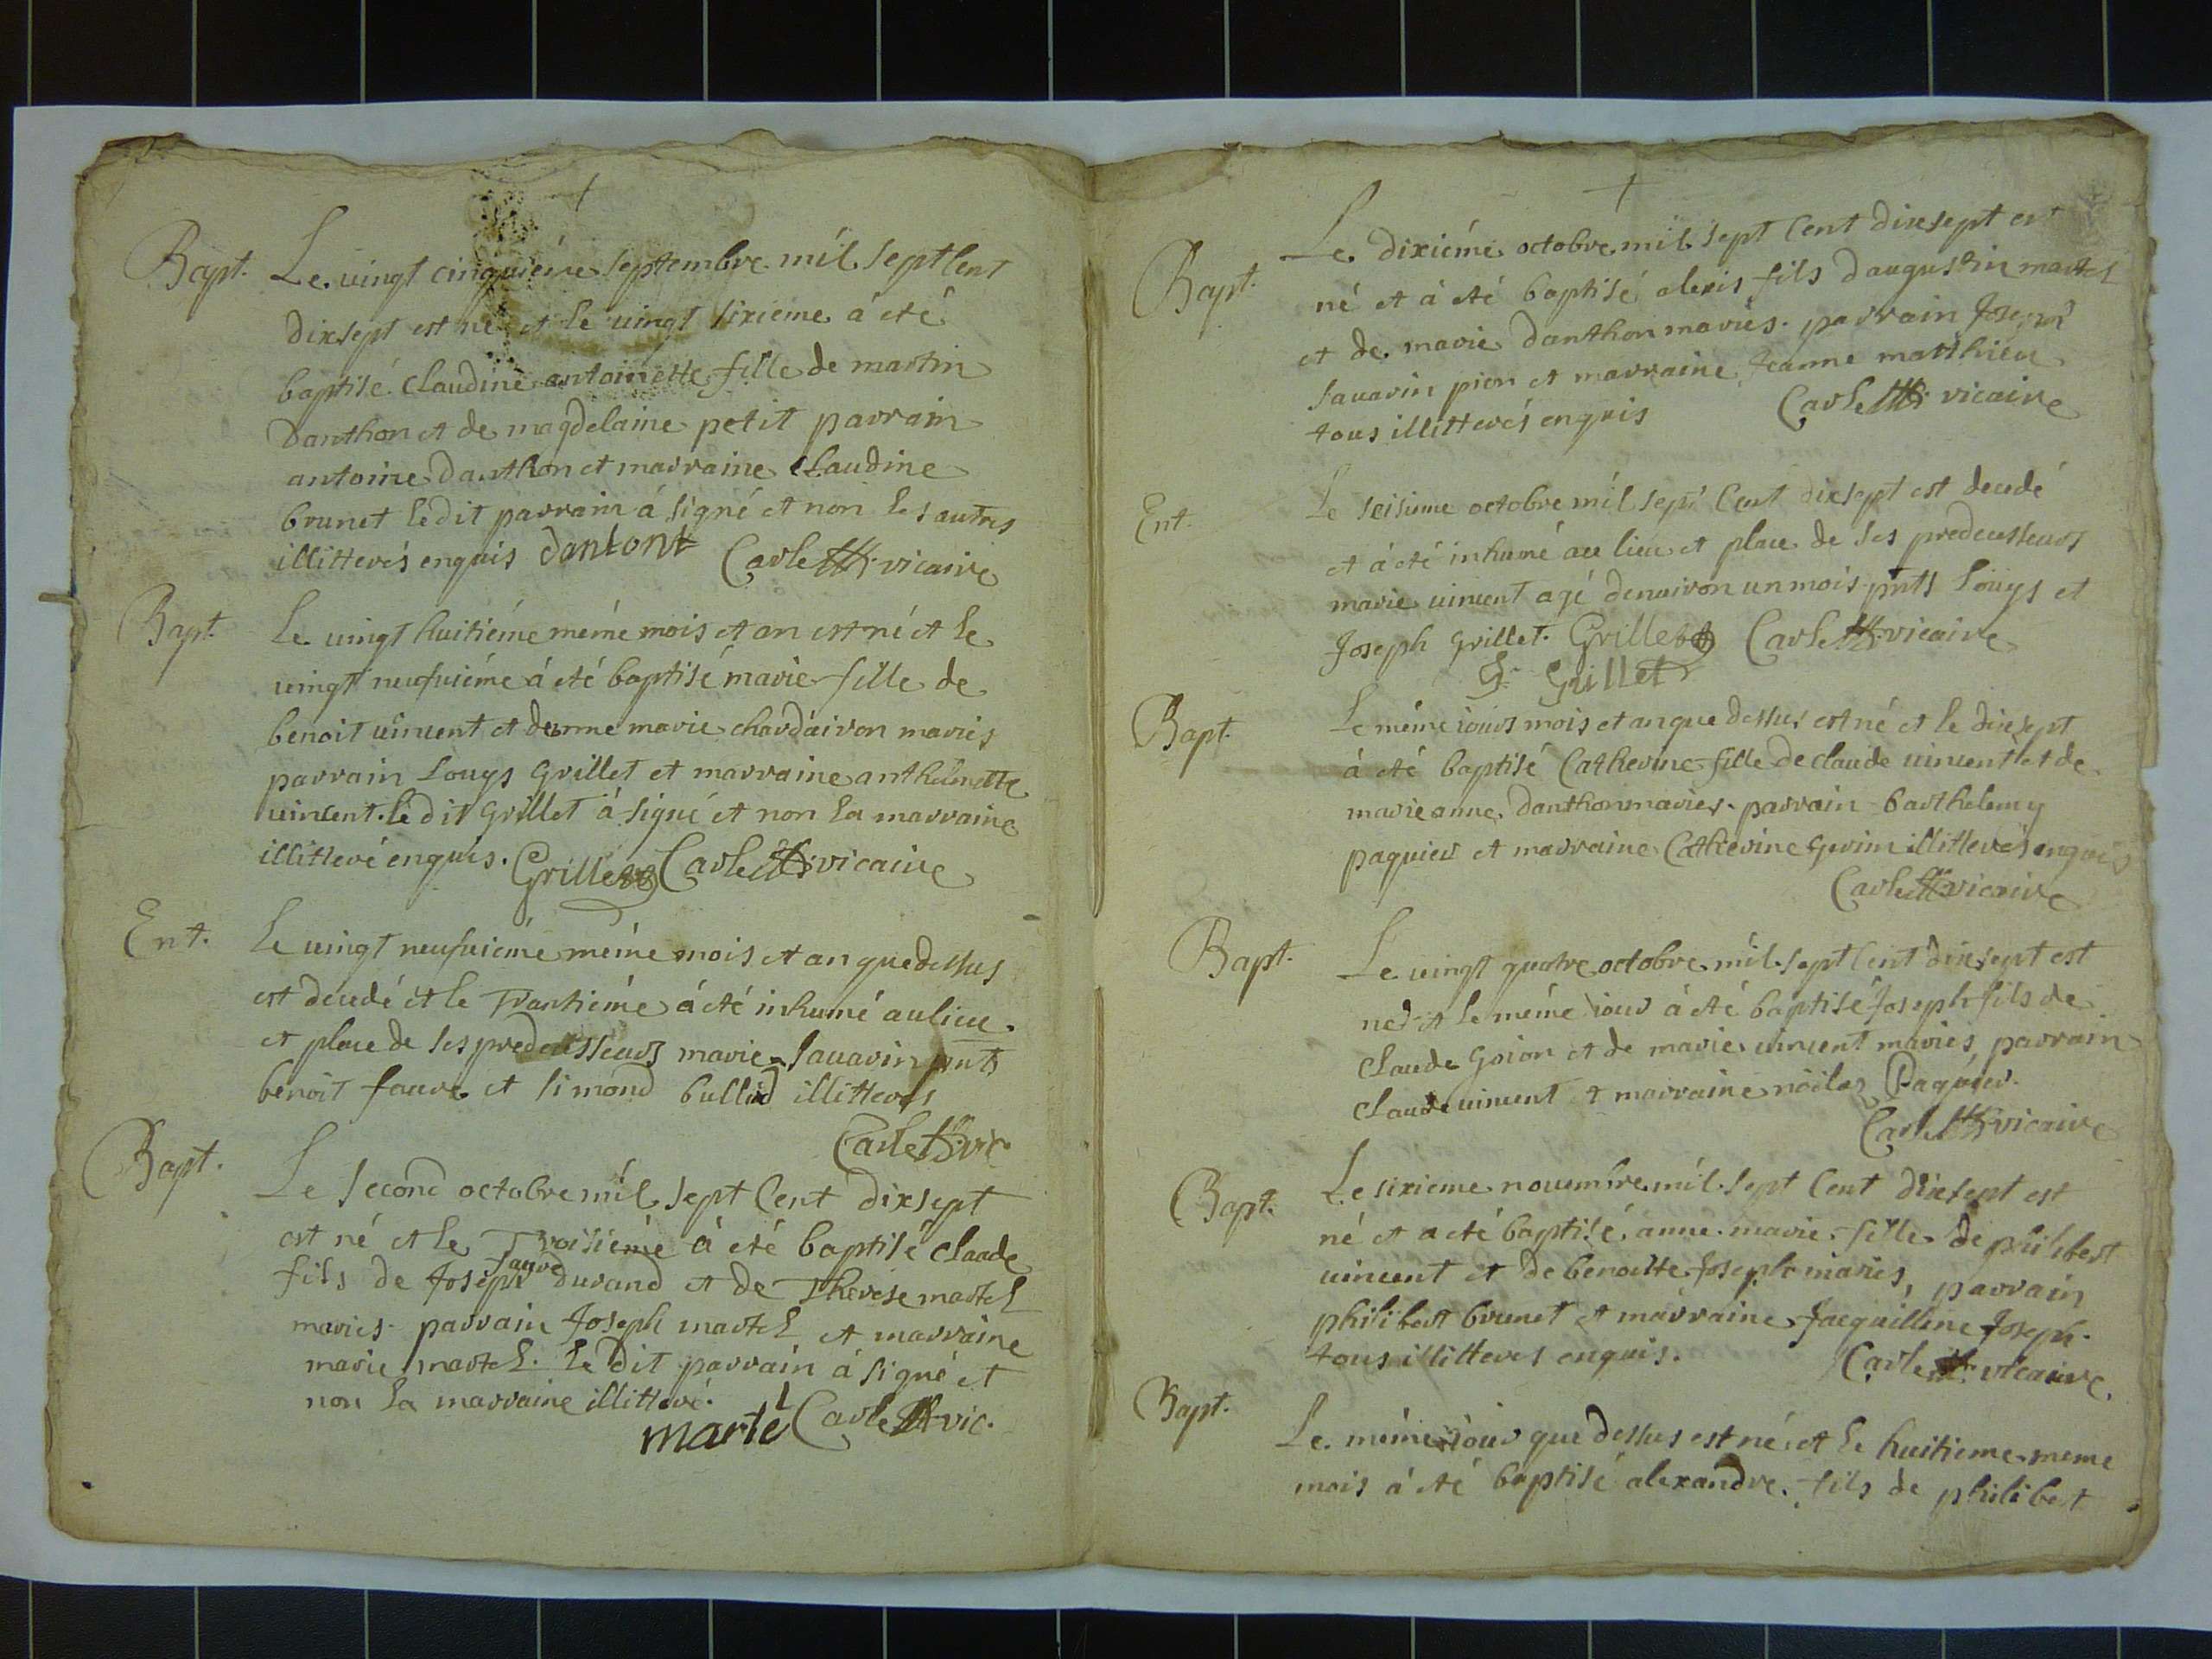 Bapt. Le vingt cinquiéme septembre mil sept Cent
dixsept est né et le vingt sixieme á eté
baptisé Claudine antoinette fille de martin
Danthon et de magdelaine petit parrain
antoine danthon et marraine Claudine
brunet ledit parrain á signé et non les autres
illitterés enquis dantont Carle vicaire
Bapt. Le vingt huitiéme méme mois et an est né et le
vingt neufviéme á eté baptisé marie fille de
benoit vincent et danne marie chardairon mariés
parrain Louys Grillet et marraine anthelmette
vincent. ledit Grillet á signé et non la marraine
illitteré enquis. Grillet Carle vicaire
Ent. Le vingt neufviéme méme mois et an que dessus
est decedé et le Trantiéme á eté inhumé au lieu
et place de ses predecesseurs marie savarin pnts
benoit faure et simond bullid illitterés
Carle vic.
Bapt. Le second octobre mil sept Cent dixsept
est né et le Troisiéme á eté baptisé claude
fils de Joseph faure durand et de Therese martel
mariés parrain Joseph martel et marraine
marie martel. Le dit parrain á signé et
non la marraine illitteré.
martel Carle vic.
Bapt. Le dixiéme octobre mil sept Cent dixsept est
né et á eté baptisé alexis fils daugustin martel
et de marie danthon mariés. parrain Joseph
savarin pion et marraine Jeanne matthieu
tous illitterés enquis Carle vicaire
Ent. Le seisiume octobre mil sept Cent dixsept est decedé
et á eté inhumé au lieu et place de ses predecesseurs
marie vincent agé denuiron un mois pnts Louys et
Joseph Grillet. Grillet Carle vicaire
Grillet
Bapt. Le méme iour mois et an que dessus est né et le dixsept
á eté baptisé Catherine fille de claude vincent et de
marie anne danthon mariés. parrain barthelemy
paquier et marraine Catherine Guim illitterés enquis
Carle vicaire
Bapt. Le vingt quatre octobre mil sept Cent dixsept est
ned et le méme iour á eté baptisé Joseph fils de
claude Goion et de marie vincent mariés, parrain
claude vincent et marraine Paquier.
Carle vicaire
Bapt. Le sixieme nouembre mil sept Cent dixsept est
né et a eté baptisé anne marie fille de philibert
vincent et de benoitte Joseph mariés, parrain
philibert brunet et marraine Jacquilline Joseph.
tous illitterés enquis. Carle vicaire.
Bapt. Le méme iour que dessus est né et le huitieme meme
mois á eté baptisé alexandre fils de philibert